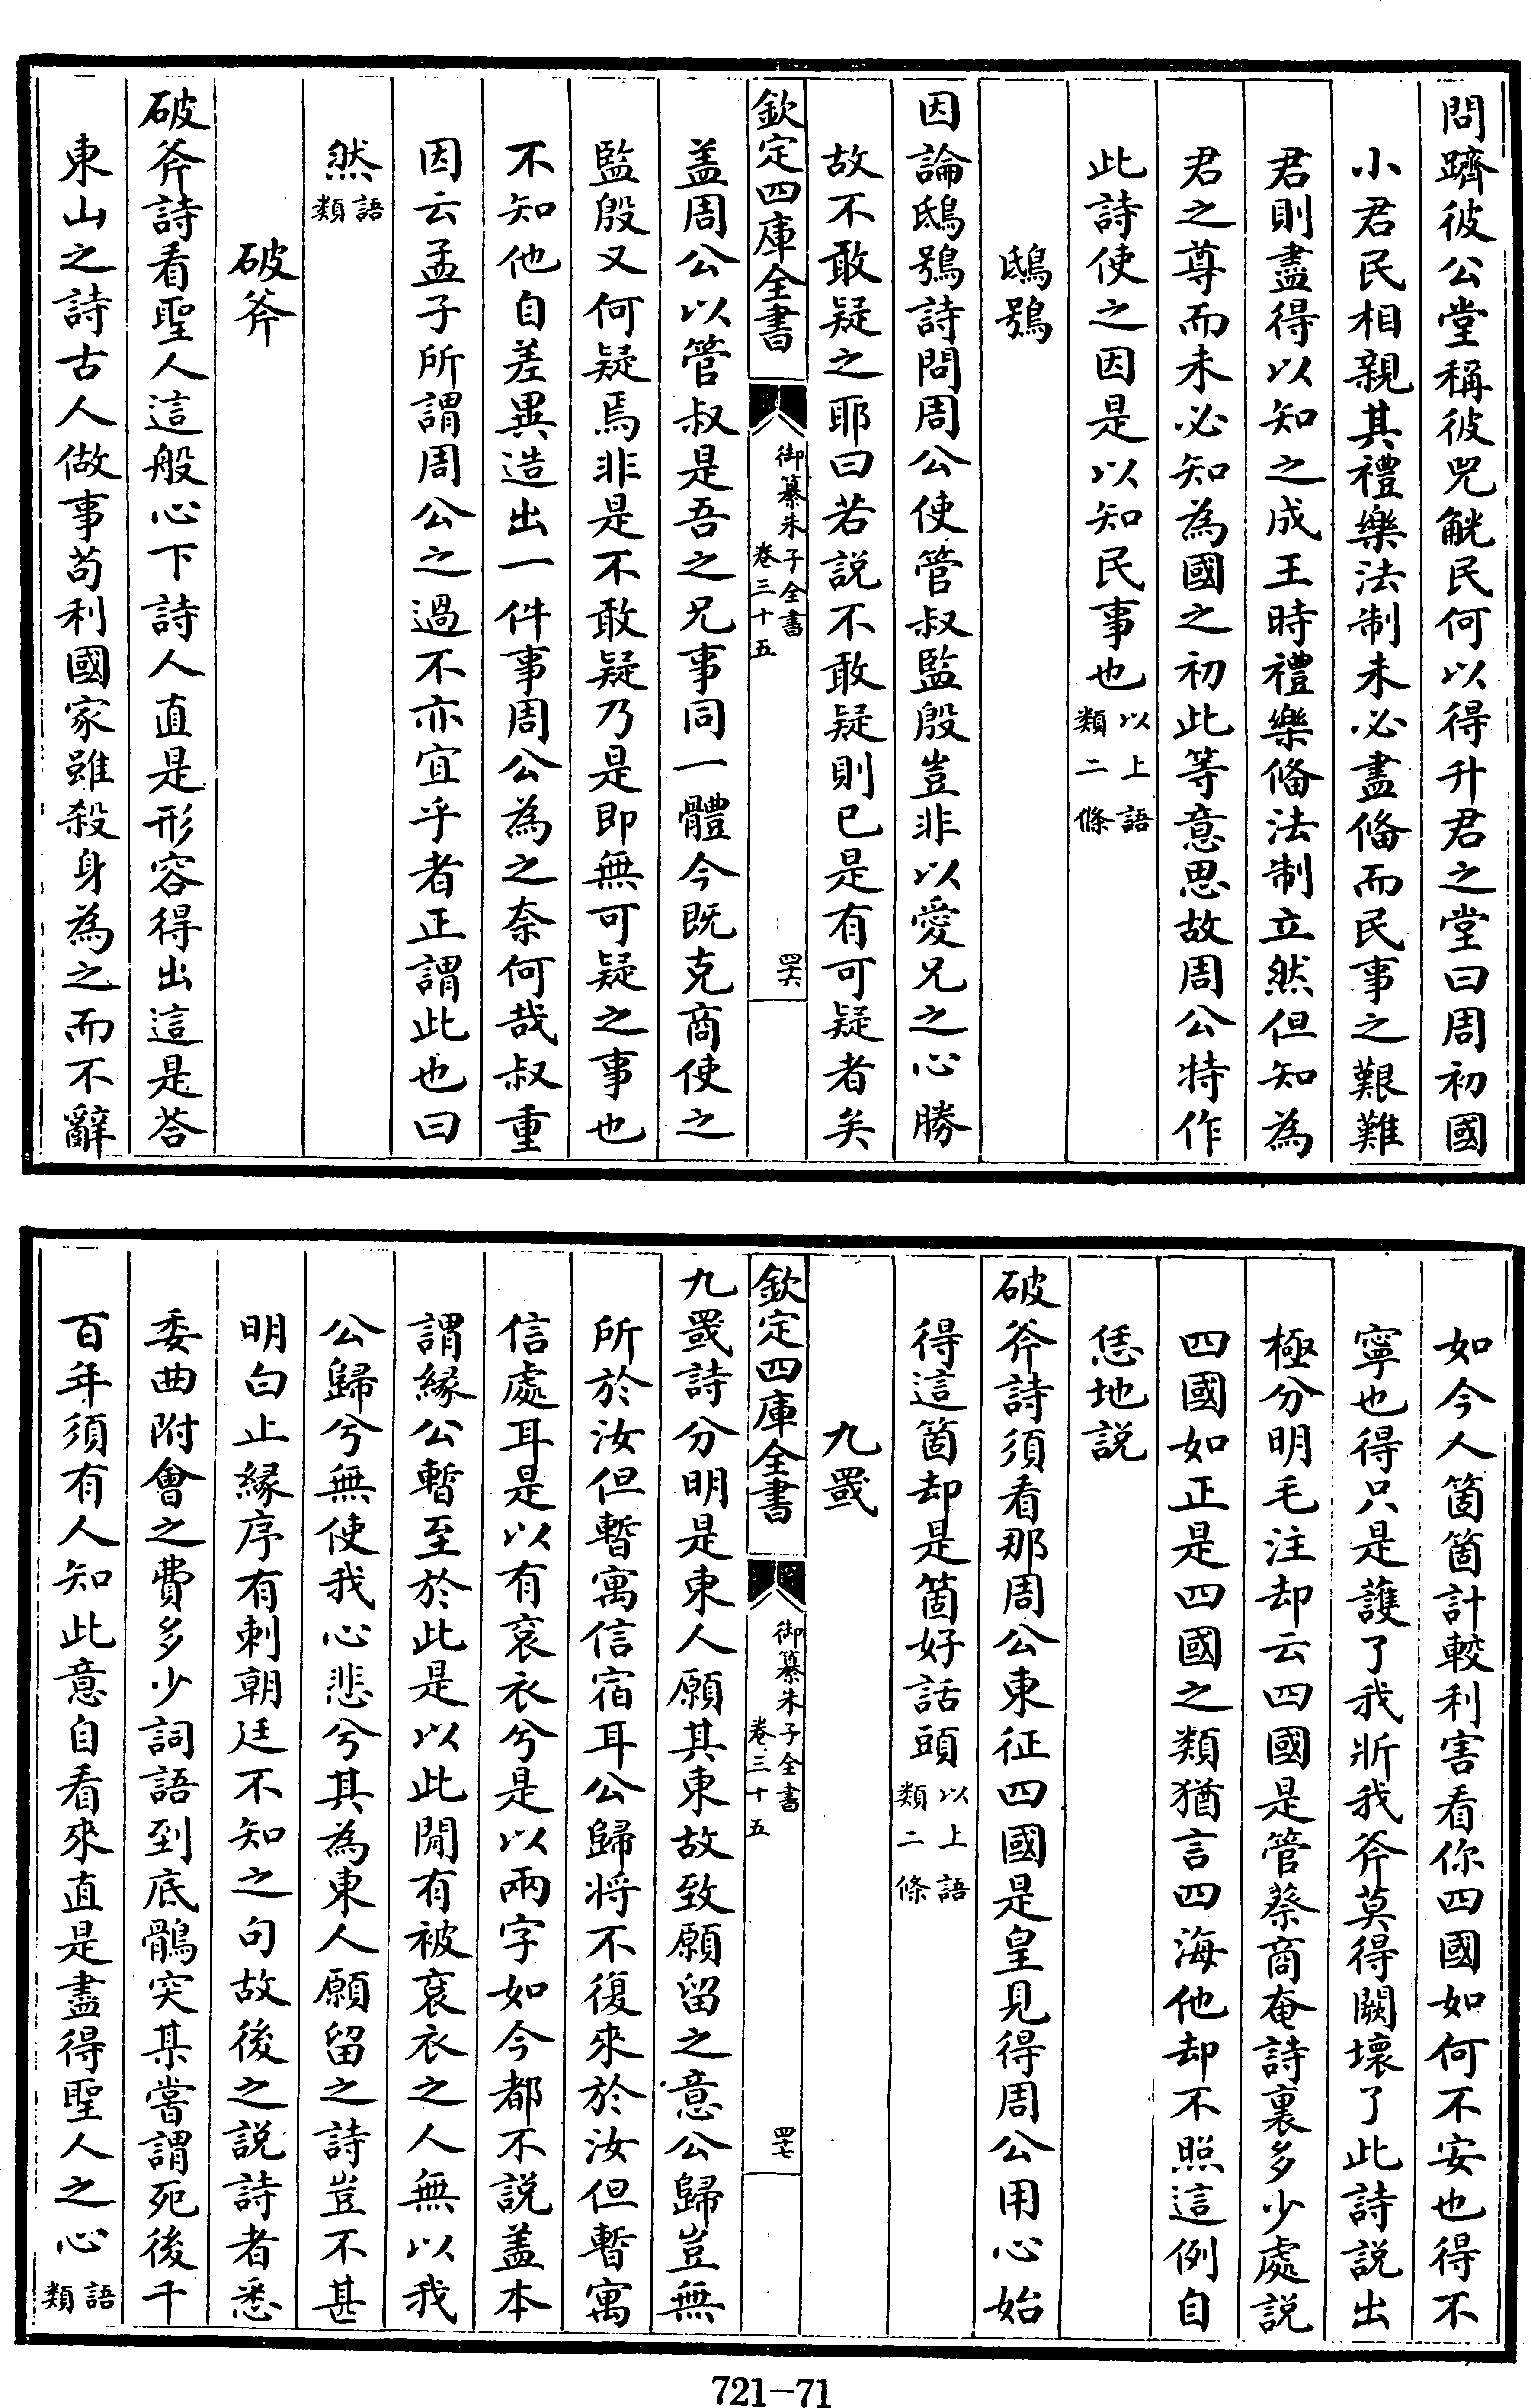 問躋彼公堂稱彼兕觥民何以得升君之堂曰周初國
小君民相親其禮樂法制未必盡備而民事之艱難
君則盡得以知之成王時禮樂備法制立然但知為
君之尊而未必知為國之初此等意思故周公特作
此詩使之因是以知民事也以上語類二條
鴟鴞
因論鴟鴞詩問周公使管叔監殷豈非以愛兄之心勝
故不敢疑之耶曰若説不敢疑則已是有可疑者矣
欽定四庫全書 御纂朱子全書 卷三十五 四六
盖周公以管叔是吾之兄事同一體今既克商使之
監殷又何疑焉非是不敢疑乃是即無可疑之事也
不知他自差異造出一件事周公為之奈何哉叔重
因云孟子所謂周公之過不亦宜乎者正謂此也曰
然語類
破斧
破斧詩看聖人這般心下詩人直是形容得出這是荅
東山之詩古人做事苟利國家雖殺身為之而不辭
如今人箇箇計較利害看你四國如何不安也得不
寧也得只是護了我斨我斧莫得闕壞了此詩説出
極分明毛注却云四國是管蔡商奄詩裏多少處説
四國如正是四國之類猶言四海他却不照這例自
恁地説
破斧詩須看那周公東征四國是皇見得周公用心始
得這箇却是箇好話頭以上語類二條
九罭
欽定四庫全書 御纂朱子全書 卷三十五 四七
九罭詩分明是東人願其東故致願留之意公歸豈無
所於汝但暫寓信宿耳公歸将不復來於汝但暫寓
信處耳是以有衮衣兮是以兩字如今都不説盖本
謂緣公暫至於此是以此間有被衮衣之人無以我
公歸兮無使我心悲兮其為東人願留之詩豈不甚
明白止緣序有刺朝廷不知之句故後之説詩者悉
委曲附會之費多少詞語到底鶻突某嘗謂死後千
百年須有人知此意自看來直是盡得聖人之心語類
721-71